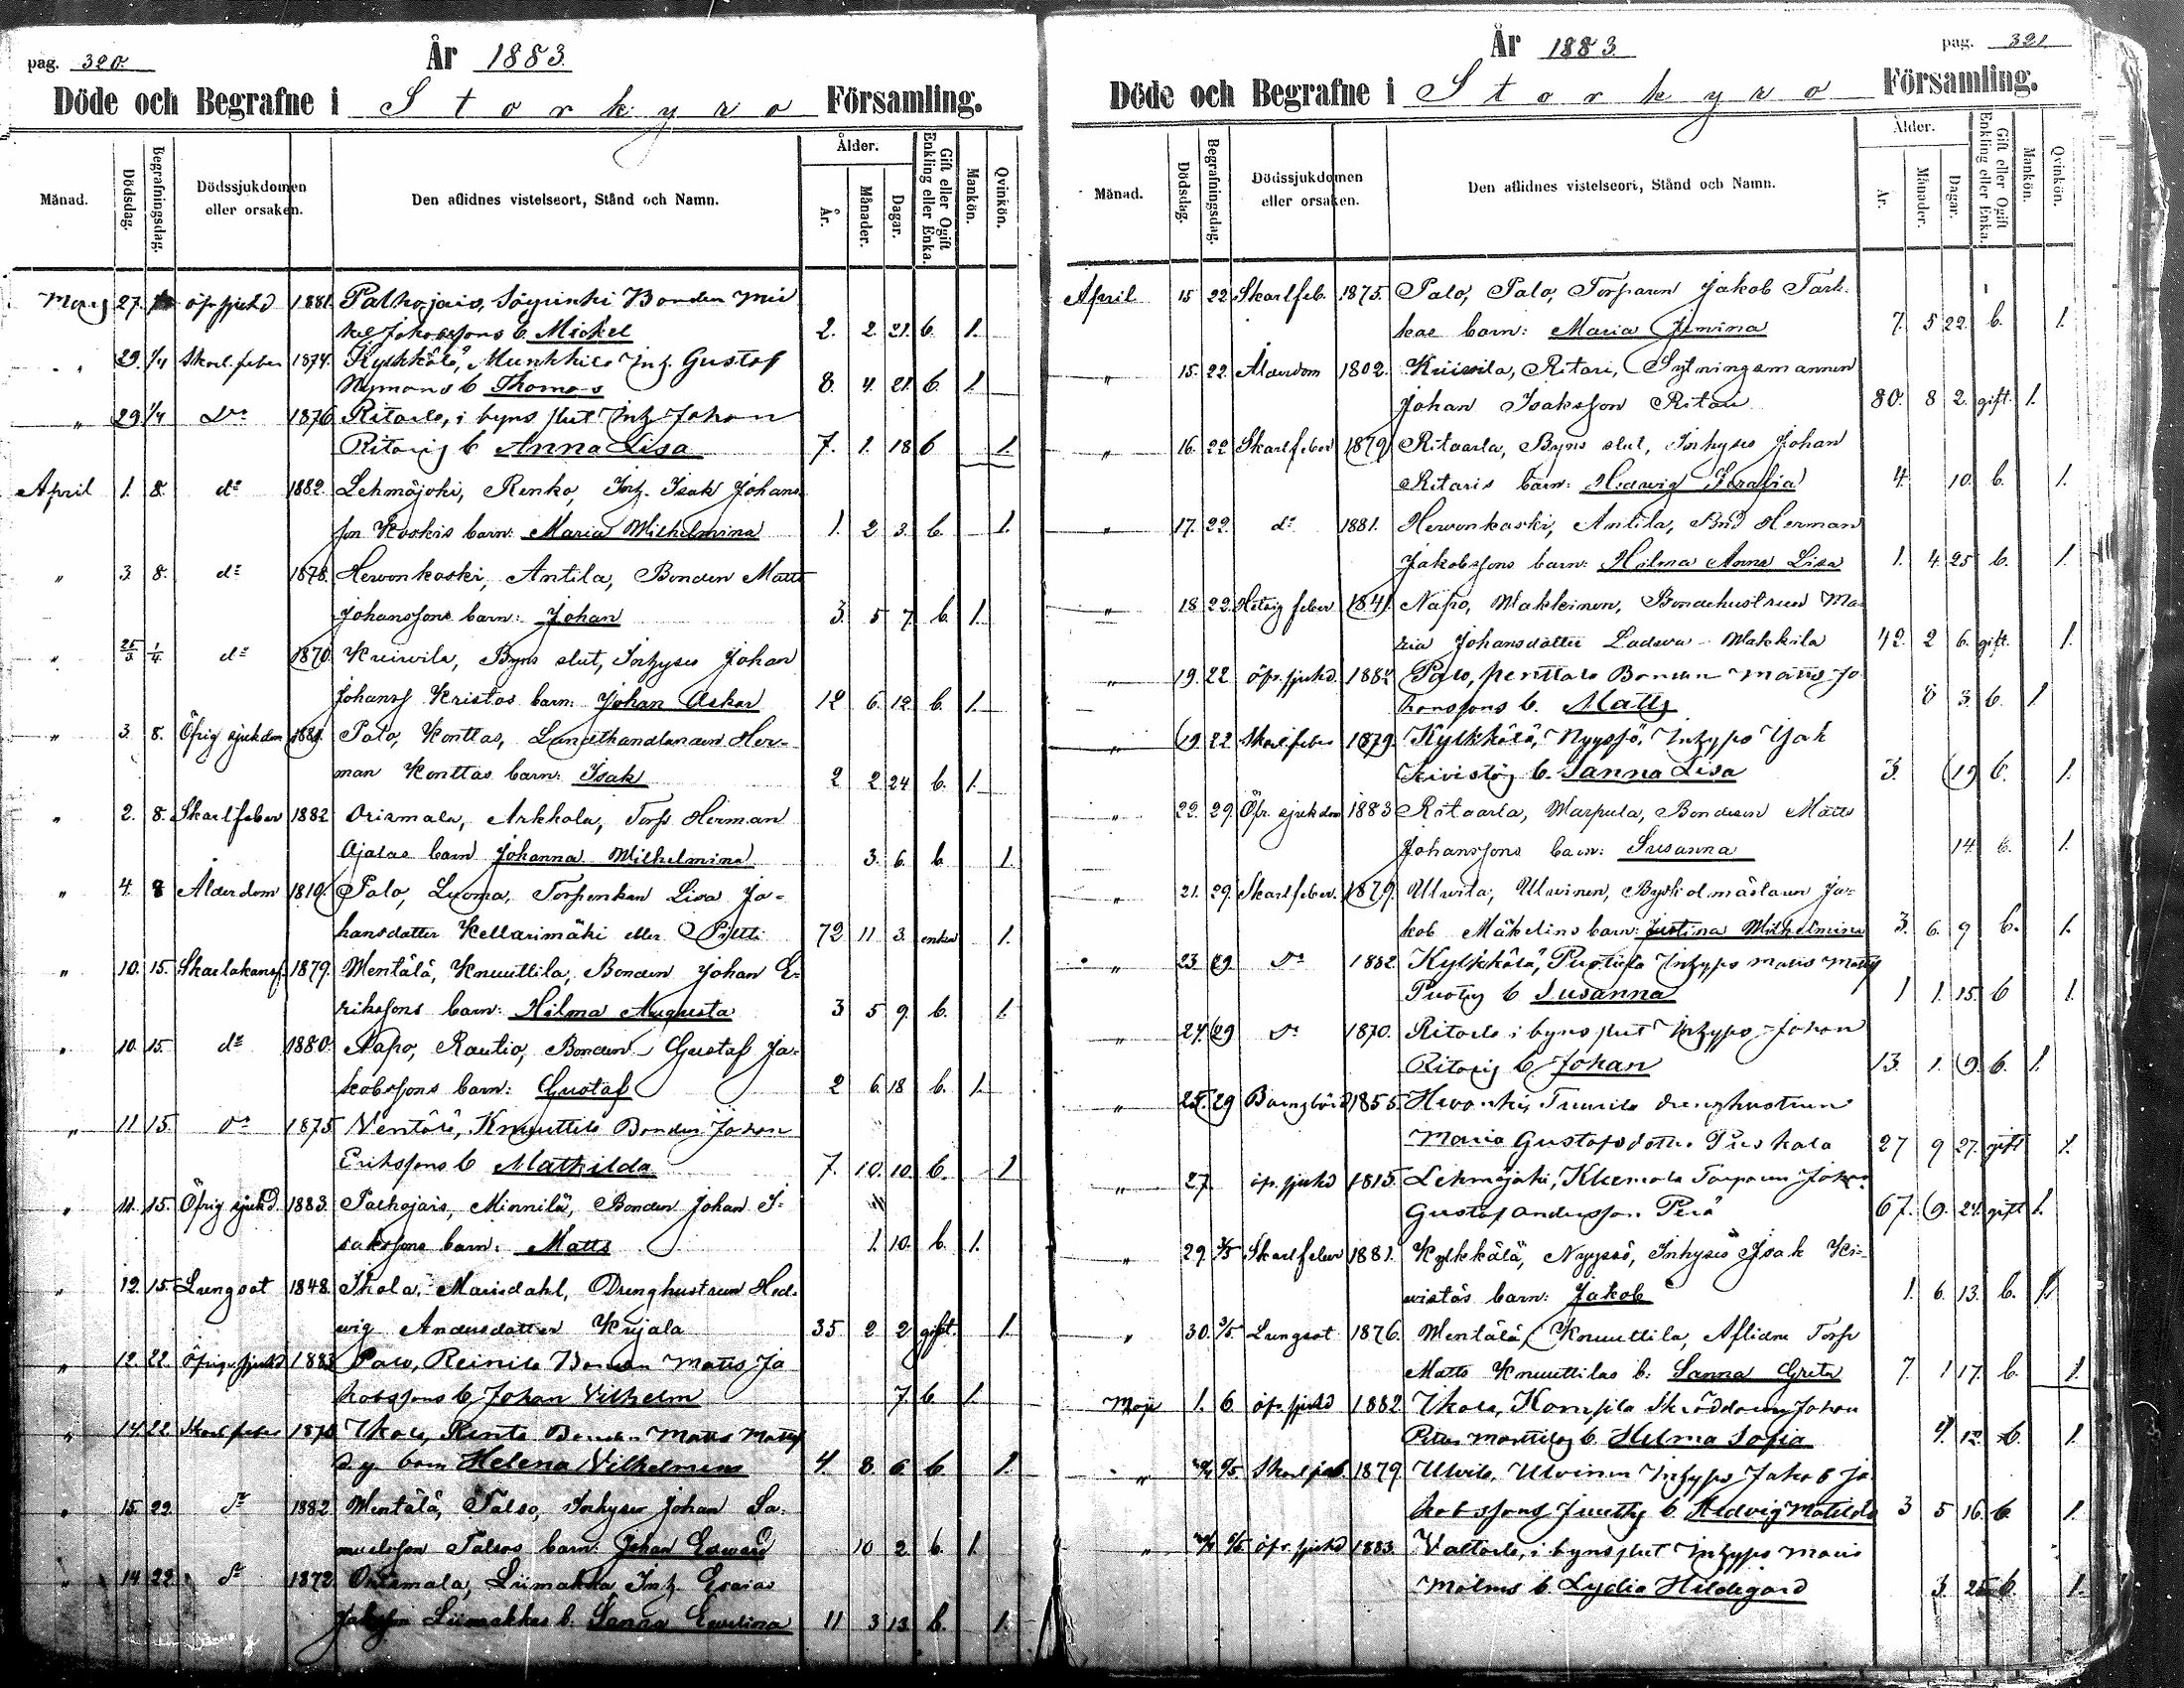 pag. 320.
År 1883.
Döde och Begrafne i Storkyro Församling.
Månad.
Dödsdag.
Begrafningsdag.
Dödssjukdomen eller orsaken.
Den aflidnes vistelseort, Stånd och Namn.
Ålder.
År.
Månader.
Dagar.
Gift eller Ogift Enkling eller Enka.
Mankön.
Qvinkön.
27. öfr sjukd 1881. Palhojais, Bonden Mic
kel Jakobssons b. Mickel 2. 2. 21. b. 1.
29. 1/4 Skarl. feber 1874. Kylkkälä, Munkkila Inh. Gustaf
Nymans b Thomas 8. 4. 21. b 1.
" 29. 1/4 Do 1876 Ritaala, i byns slut Inh Johan
Ritaris b Anna Lisa 7. 1. 18 b 1.
April 1. 8. do 1882. Lehmäjoki, Renko, Inh. Isak Johans
son Koskis barn: Maria Wilhelmina 1. 2 3. b. 1.
" 3. 8. do 1878. Herwonkoski, Antila, Bonden Matts
Johanssons barn: Johan 3. 5 7. b. 1.
" 25/3 1/4 do 1870 Kuiwila, Byns slut, Inhyses Johan
Johanss Kristos barn: Johan Oskar 12 6. 12. b. 1.
" 3. 8. Öfrig sjukdom 1881. Palo, Konttas, Landthandlanden Her-
man Konttas barn: Isak 2 2 24 b. 1.
" 2. 8. Skarlfeber 1882 Orismala, Arkkola, Torp Herman
Ojalas barn Johanna Wilhelmina 3. 6. b. 1.
" 4. 8 Ålderdom 1810. Palo, Luoma, Torpenkan Lisa Jo-
hansdotter Kellarimäki eller Pittli 72 11 3. enka 1.
" 10. 15. Skarlakansf. 1879. Mentälä, Knuuttila, Bonden Johan E-
rikssons barn: Hilma Augusta 3 5 9. b. 1.
" 10. 15. do 1880. Napo, Rautio, Bonden Gustaf Ja-
kobssons barn: Gustaf 2 6. 18 b. 1.
" 11. 15. do 1875 Mentälä, Knuuttila Bonden Johan
Erikssons b Mathilda 7. 10. 10. b. 1
" 11. 15. Öfrig sjukd. 1883. Palhojais, Minnilä, Bonden Johan I-
sakssons barn: Matts 1. 10. b. 1.
" 12. 15. Lungsot 1848. Ikola, Mariedahl, Drenghustrun Hed-
wig Andersdotter Kujala 35. 2 2 gift. 1.
" 12. 22. Öfrig sjukd 1883 Palo, Reinila Bonden Matts Ja
kobssons b. Johan Vilhelm 7. b. 1.
" 14. 22. Skarl feber 1878 Ikola, Rinta Bonden Matts Matts
d. y. barn Helena Vilhelmina 4. 8. 6 b 1.
" 15. 22. do 1882 Mentälä, Talso, Inhyses Johan Sa-
muelsson Talsos barn: Johan Edward 10 2 b. 1.
" 14. 22. do 1872 Orismala, Liimakka Inh. Esaias
Liimakkas b. Sanna Ewelina 11 3 13. b. 1.
pag. 321
År 1883.
Döde och Begrafne i Storkyro Församling.
Månad.
Dödsdag.
Begrafningsdag.
Dödssjukdomen eller orsaken.
Den aflidnes vistelseort, Stånd och Namn.
Ålder.
År.
Månader.
Dagar.
Gift eller Ogift Enkling eller Enka.
Mankön.
Qvinkön.
April 15 22 Skarlfeb. 1875. Palo, Palo, Torparen Jakob Tark-
kas barn: Maria Jemina 7. 5 22. b. 1.
" 15. 22. Ålderdom 1802. Kuiwila, Ritari, Sytningsmannen
Johan Isaksson Ritari 80. 8 2. gift. 1.
" 16. 22 Skarlfeber 1879 Ritaarla, Byns slut, Inhyses Johan
Ritaris barn: Hedwig Serafia 4. 10. b. 1.
" 17. 22. do 1881. Herwonkoski, Antila, Bnd Herman
Jakobssons barn: Hilma Anna Lisa 1. 4. 25 b. 1.
" 18 22. Hetsig feber 1841. Napo, Makkeinen, Bondehustrun Ma-
ria Johansdotter Ladwa-Makkila 42. 2 6. gift. 1.
" 19. 22 öfr. sjukd. 1882 Palo, Penttala Bonden Matts Jo
hanssons b. Matts 8 3. b. 1
" 19 22 Skarlfeber 1879. Kylkkälä, Nyyssö, Inhyses Isak
Kivistös b. Sanna Lisa 3. 19 b. 1.
" 22. 29. Öfr. sjukdom 1883 Ritaarla, Marpula, Bonden Matts
Johanssons barn: Susanna 14 b. 1.
" 21. 29. Skarlfeber. 1879. Ulwila, Ulwinen, Byskolmästaren Ja-
kob Mäkelins barn: Justina Wilhelmina 3. 6. 9 b. 1.
" 23. 29 do 1882. Kylkkälä, Inhyses Matts Matts
b Susanna 1 1. 15. b 1.
" 24. 29 do 1870. Ritaala i byns slut Inhyses Johan
Ritaris b. Johan 13. 1. 9. b. 1.
" 25. 29 Barnsbörd 1855. Drenghustrun
Maria Gustafsdotter 27 9 27. gift 1.
" 27. öfr. sjukd 1815. Lehmäjoki, Klemola Torparen Johan
Gustaf Andersson Perä 67. 9. 24. gift 1.
" 29. 3/5 Skarlfeber 1881. Kylkkälä, Nyyssö, Inhyses Isak Ki-
wistös barn: Jakob 1. 6. 13. b. 1
" 30. 3/5 Lungsot 1876. Mentälä, Knuuttila, Aflidne Torp
Matts Knuuttilas b: Sanna Greta 7. 1 17. b. 1.
Maji 1. 6. öfr. sjukd 1882 Ikola, Kompila Skräddaren Johan
b. Hilma Sofia 4. 12. b. 1.
" 6/5 Skarlfeb. 1879. Ulvila, Ulvinen Inhyses Jakob Ja
kobssons b. Hedvig Matilda 3 5 16. b. 1.
" 6/5 öfr. sjukd 1883. i byns slut Inhyses
Malms b. Lydia Hildegard 3. 25 b. 1.